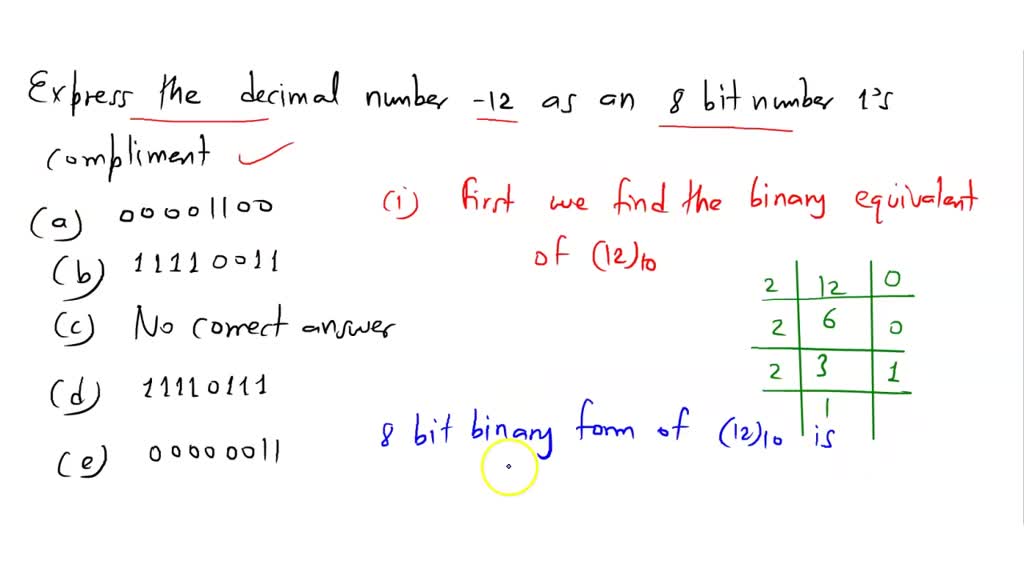 Express the decimal number -12 as an 8 bit number 1's
compliment
(a) 00001100
(b) 11110011
(c) No correct answer
(d) 11110111
(e) 00000011
(i) first we find the binary equivalent
of (12)10
2 12 0
2 6 0
2 3 1
1
8 bit binary form of (12)10 is